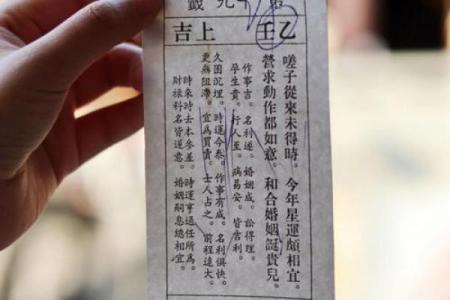 乙壬
上吉
嗟子從來未得時。今年星運頗相宜。
營求動作都如意。和合婚姻誕貴兒。
作事吉。名利遂。婚姻成。訟得理。
孕生貴。行人至。病易安。皆吉利。
久困沉埋。時運今泰。作事有成。名利俱快。
更無阻滯。宜為買賣。士人占之。前程遠大。
時來時去本參差。時運亨通任所為。
財祿科名皆遂意。婚姻嗣息總相宜。